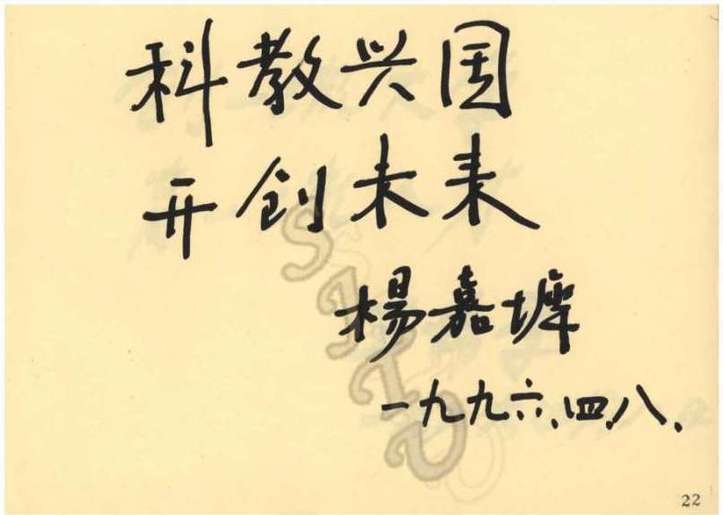 科教兴国
开创未来
杨嘉墀
一九九六、四、八、
SJTU
22